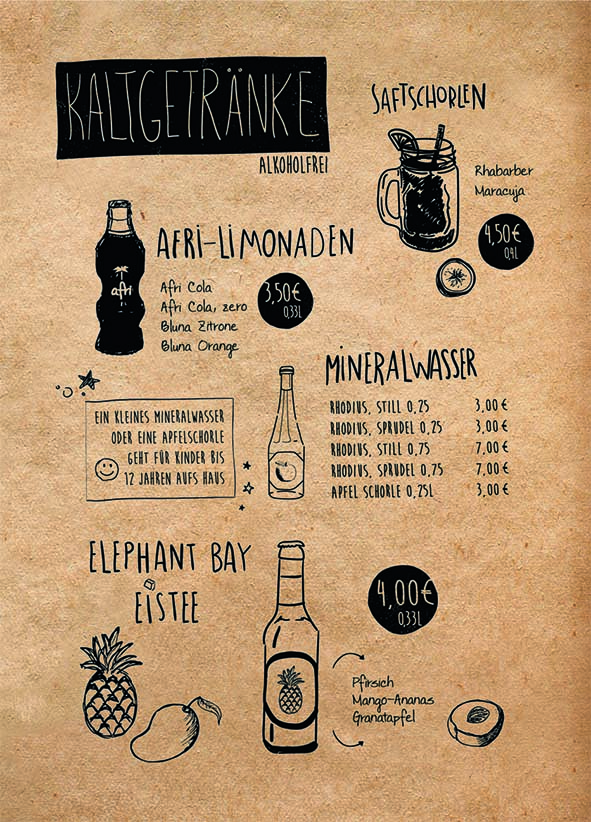 KALTGETRÄNKE
ALKOHOLFREI
SAFTSCHORLEN
Rhabarber
Maracuja
4,50€
0,4L
AFRI-LIMONADEN
afri
Afri Cola
Afri Cola, zero
Bluna Zitrone
Bluna Orange
3,50€
0,33L
MINERALWASSER
RHODIUS, STILL 0,25 3,00 €
RHODIUS, SPRUDEL 0,25 3,00 €
RHODIUS, STILL 0,75 7,00 €
RHODIUS, SPRUDEL 0,75 7,00 €
APFEL SCHORLE 0,25L 3,00 €
EIN KLEINES MINERALWASSER
ODER EINE APFELSCHORLE
GEHT FÜR KINDER BIS
12 JAHREN AUFS HAUS
ELEPHANT BAY
EISTEE
4,00€
0,33L
Pfirsich
Mango-Ananas
Granatapfel